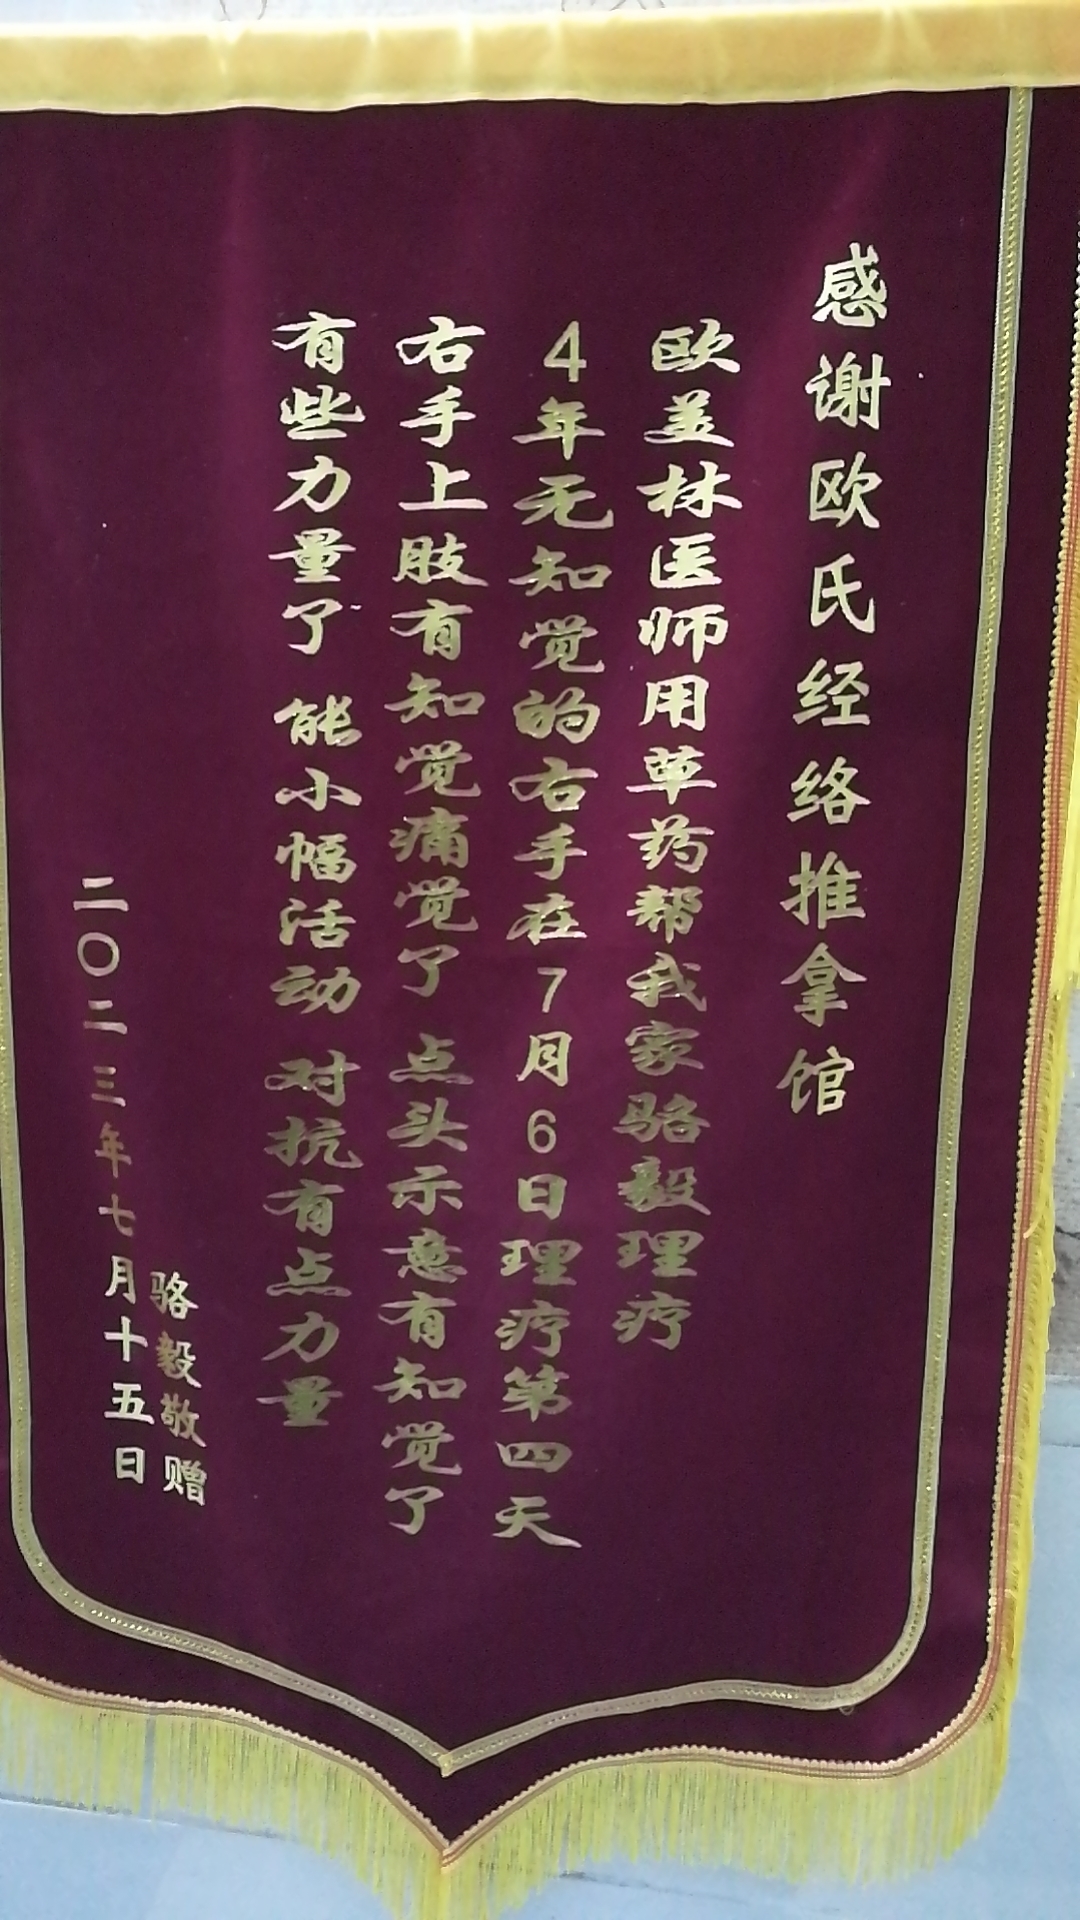 感谢欧氏经络推拿馆
欧美林医师用草药帮我家骆毅理疗
4年无知觉的右手在7月6日理疗第四天
右手上肢有知觉痛觉了 点头示意有知觉了
有些力量了 能小幅活动 对抗有点力量
骆毅敬赠
二〇二三年七月十五日